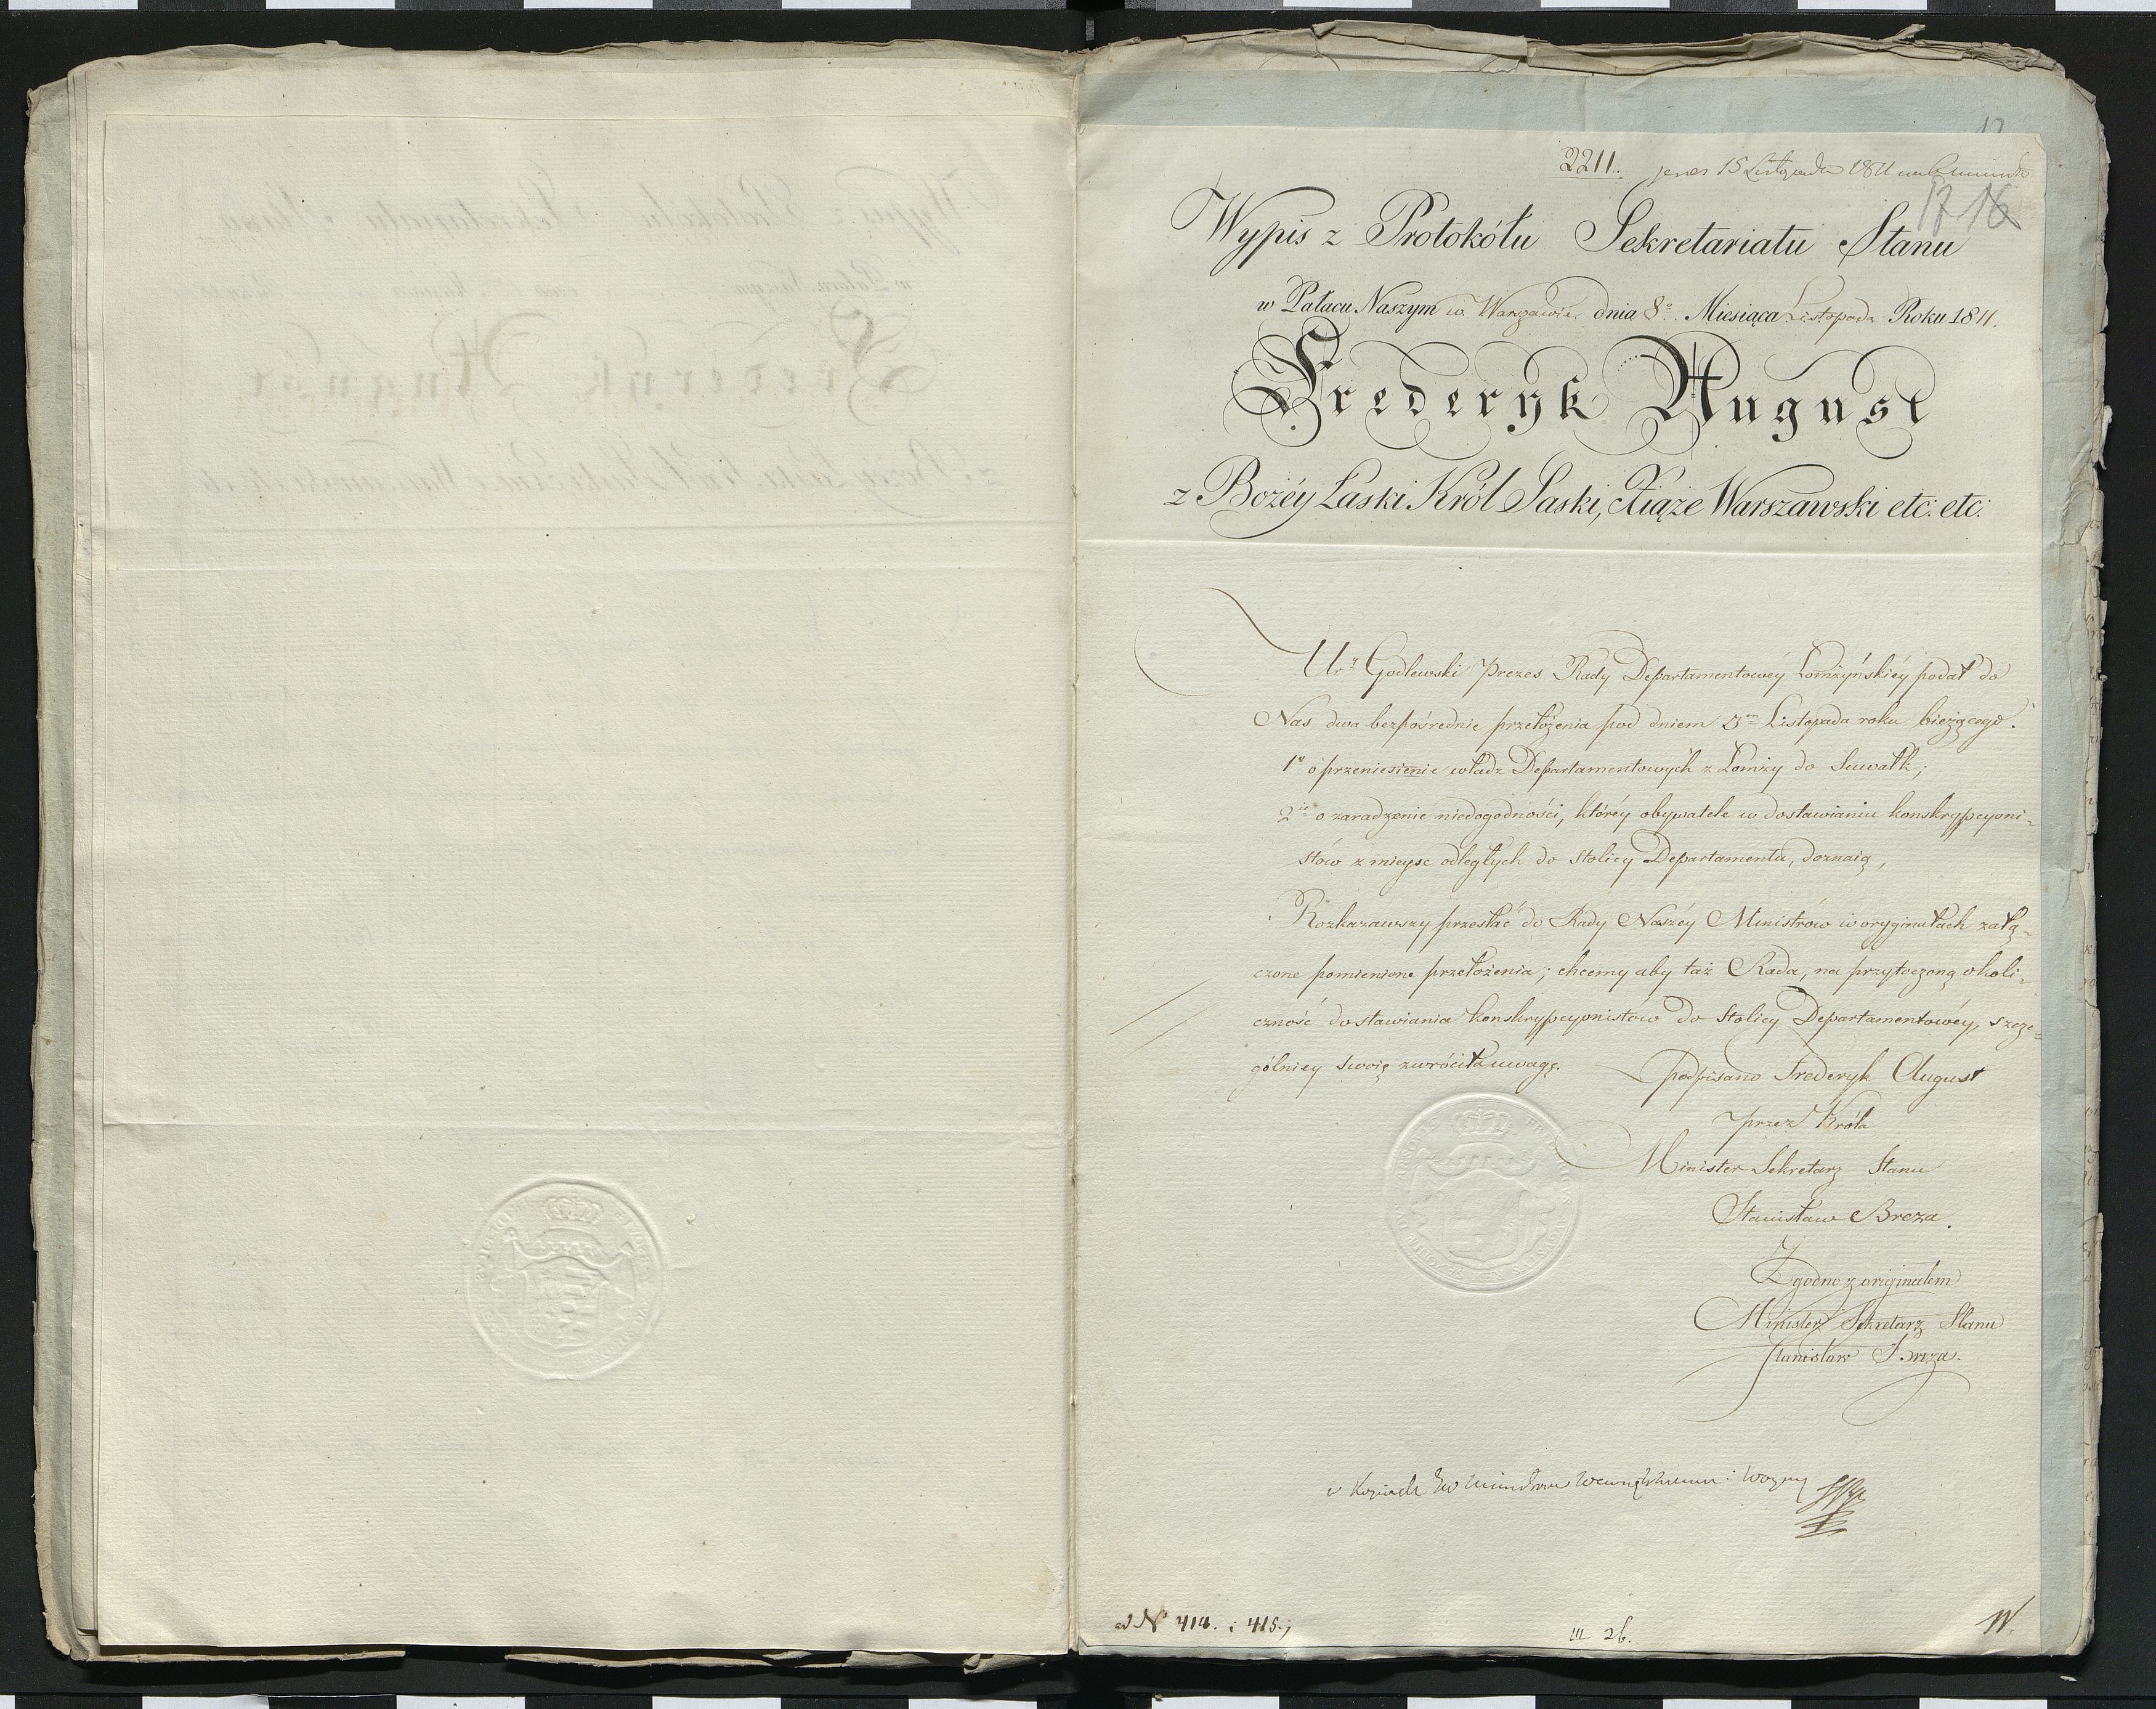 2211. pres 15 Listopada 1811
17 16
Wypis z Protokółu Sekretariatu Stanu
w Pałacu Naszym w Warszawie dnia 8º Miesiąca Listopada Roku 1811.
Frederyk August
z Bożéy Łaski Król Saski, Xiąże Warszawski etc: etc:
Ur: Godlewski Prezes Rady Departamentowéy Łomżyńskiéy podał do
Nas dwa bezpośrednie przełożenia pod dniem 3m Listopada roku bieżącego.
1º o przeniesienie władz Departamentowych z Łomży do Suwałk;
2ie o zaradzenie niedogodności, któréy obywatele w dostawianiu konskrypcyoni-
stów z mieysc odległych do Stolicy Departamentu, doznaią,
Rozkazawszy przesłać do Rady Naszéy Ministrów w oryginałach załą-
czone pomienione przełożenia; chcemy aby taż Rada, na przytoczoną okoli-
czność dostawiania konskrypcyonistów do Stolicy Departamentowéy, szcze-
gólniey swoię zwróciła uwagę.
podpisano Frederyk August
przez Króla
Minister Sekretarz Stanu
Stanisław Breza.
Zgodno z originałem
Minister Sekretarz Stanu
Stanisław Breza.
ad N 414. i 415.,
III 26.
W.